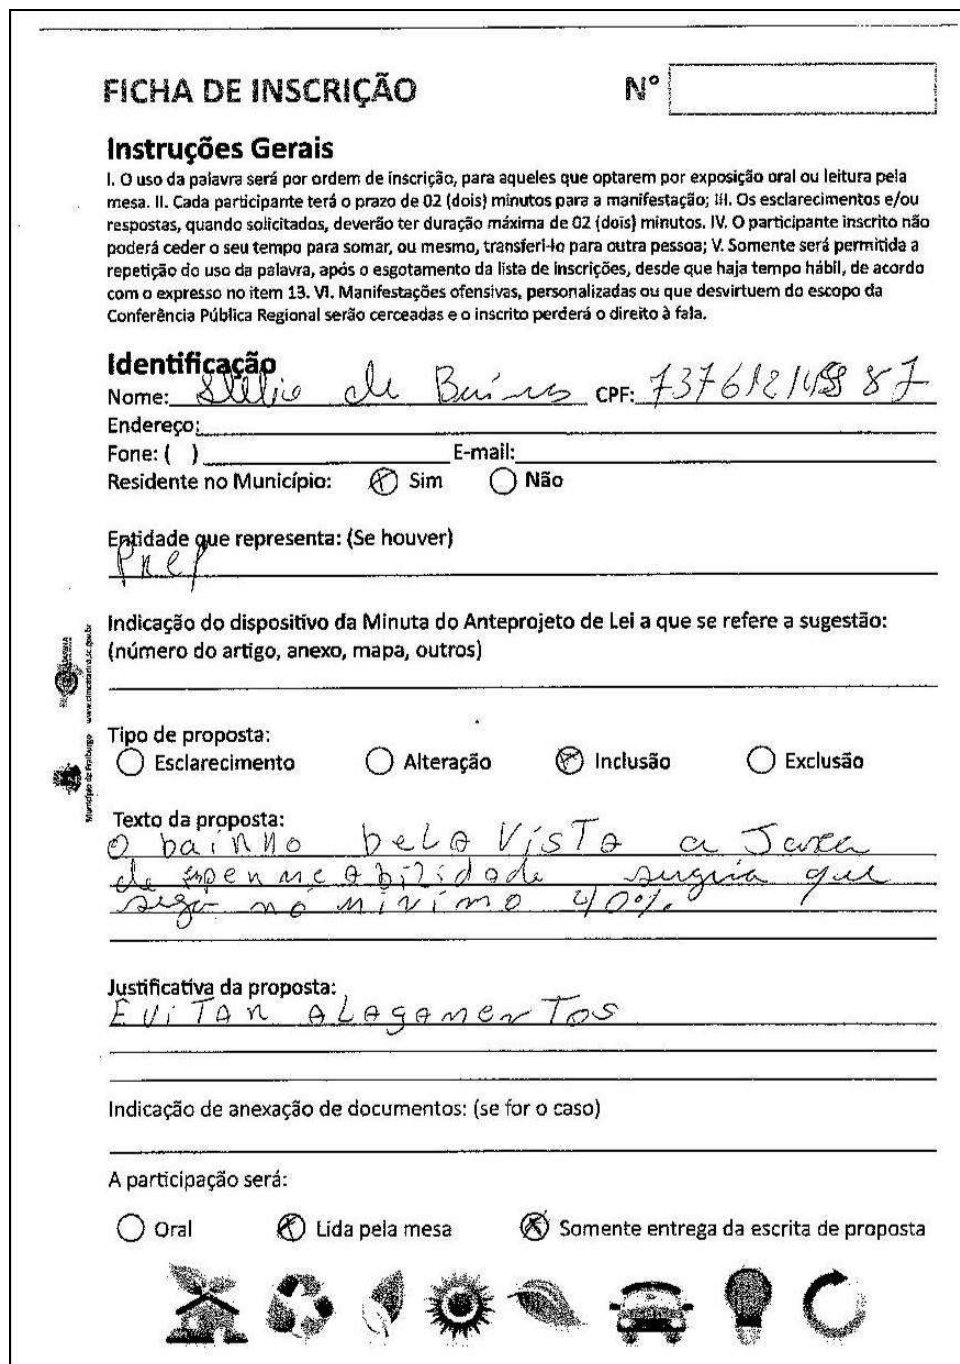 FICHA DE INSCRIÇÃO N°
Instruções Gerais
I. O uso da palavra será por ordem de inscrição, para aqueles que optarem por exposição oral ou leitura pela
mesa. II. Cada participante terá o prazo de 02 (dois) minutos para a manifestação; III. Os esclarecimentos e/ou
respostas, quando solicitados, deverão ter duração máxima de 02 (dois) minutos. IV. O participante inscrito não
poderá ceder o seu tempo para somar, ou mesmo, transferi-lo para outra pessoa; V. Somente será permitida a
repetição do uso da palavra, após o esgotamento da lista de inscrições, desde que haja tempo hábil, de acordo
com o expresso no item 13. VI. Manifestações ofensivas, personalizadas ou que desvirtuem do escopo da
Conferência Pública Regional serão cerceadas e o inscrito perderá o direito à fala.
Identificação
Nome: de CPF:
Endereço:
Fone: ( ) E-mail:
Residente no Município: Sim Não
Entidade que representa: (Se houver)
Indicação do dispositivo da Minuta do Anteprojeto de Lei a que se refere a sugestão:
(número do artigo, anexo, mapa, outros)
Município de Fraiburgo www.cimcatarina.sc.gov.br
Tipo de proposta:
Esclarecimento Alteração Inclusão Exclusão
Texto da proposta:
O bairro bela Vista a
de sugiria que
no mínimo 40%.
Justificativa da proposta:
EviTAR ALAGAMENTOS
Indicação de anexação de documentos: (se for o caso)
A participação será:
Oral Lida pela mesa Somente entrega da escrita de proposta